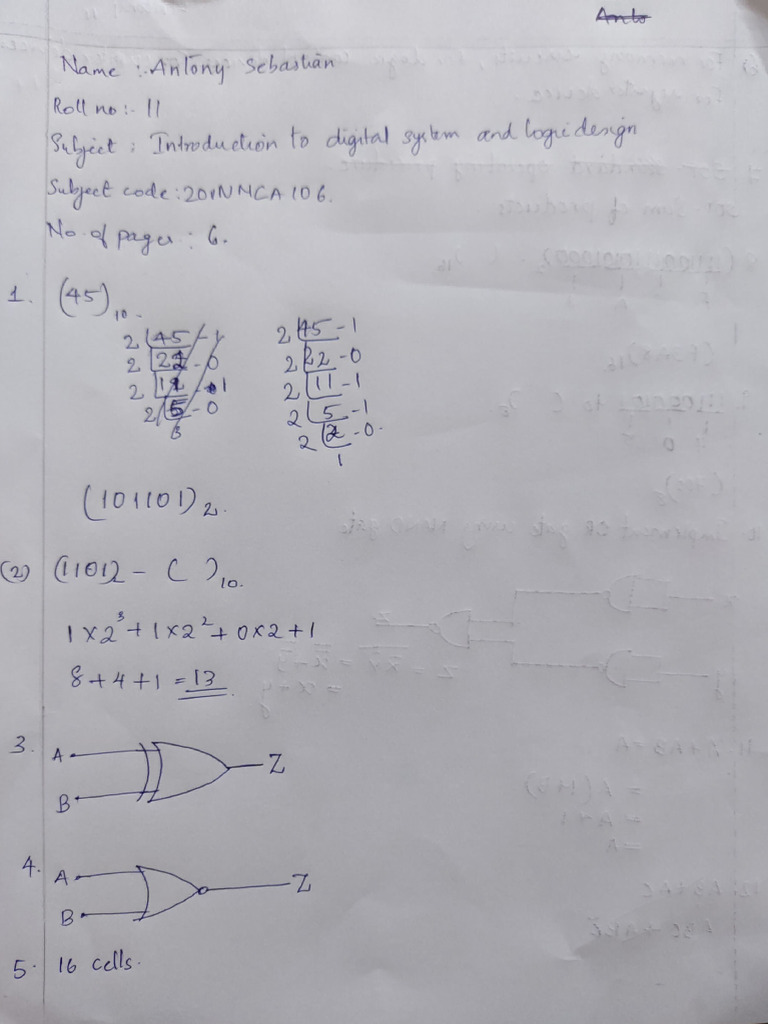 Anto
Name :- Antony Sebastian
Roll no :- 11
Subject : Introduction to digital system and logic design
Subject code : 20INMCA106.
No. of pages : 6.
1. (45)10.
2 45 - 1
2 22 - 0
2 11 - 1
2 5 - 0
3
2 45 - 1
2 22 - 0
2 11 - 1
2 5 - 1
2 2 - 0.
1
(101101)2.
(2) (1101)2 - ( )10.
1 x 2³ + 1 x 2² + 0 x 2 + 1
8 + 4 + 1 = 13.
3. A Z
B
4. A Z
B
5. 16 cells.